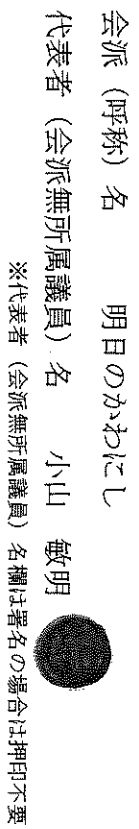 会派（呼称）名　　明日のかわにし
代表者（会派無所属議員）名　小山　敏明
※代表者（会派無所属議員）名欄は署名の場合は押印不要